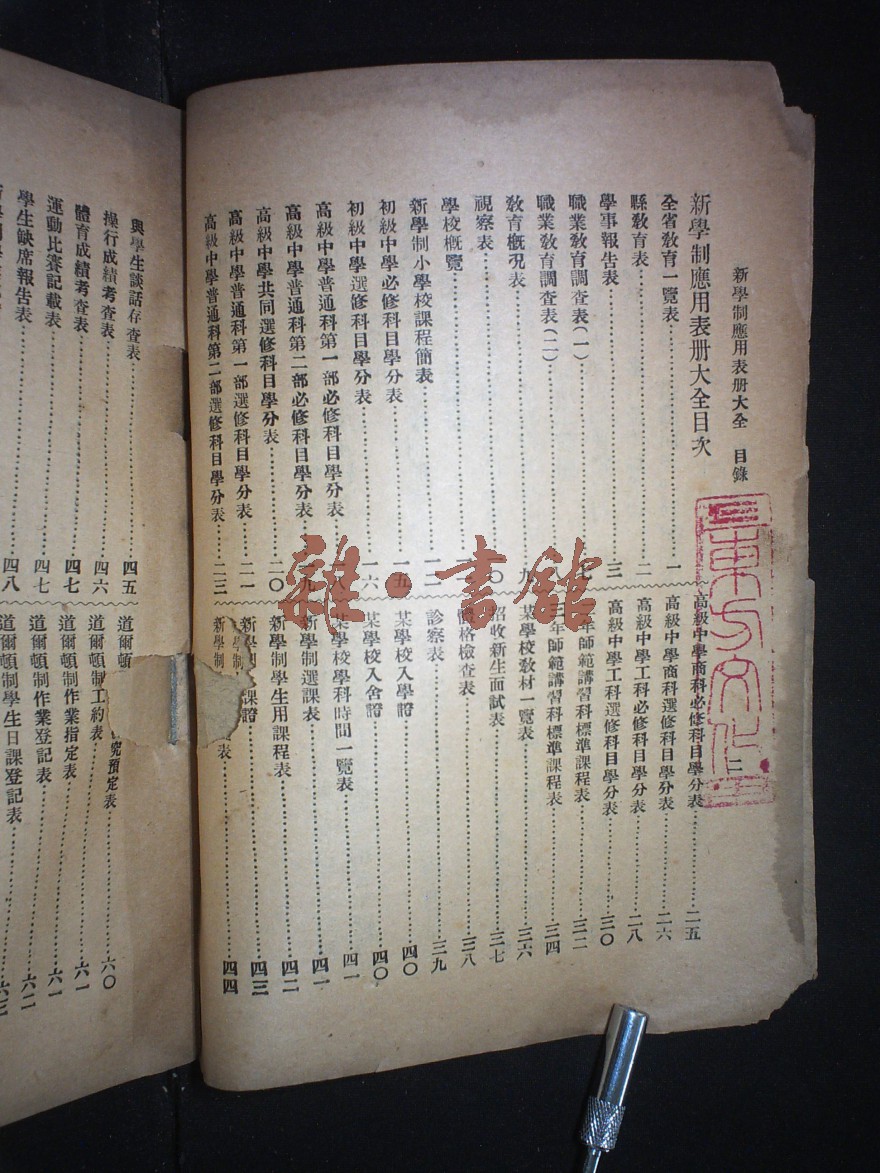 新學制應用表册大全　目錄
新學制應用表册大全目次
全省教育一覽表……一
縣教育表……二
學事報告表……三
職業教育調查表(一)……
職業教育調查表(二)……
教育概况表……九
視察表……
學校概覽……
新學制小學校課程簡表……一二
初級中學必修科目學分表……一五
初級中學選修科目學分表……一六
高級中學普通科第一部必修科目學分表……一八
高級中學普通科第二部必修科目學分表……一九
高級中學共同選修科目學分表……二〇
高級中學普通科第一部選修科目學分表……二一
高級中學普通科第二部選修科目學分表……二三
高級中學商科必修科目學分表……二五
高級中學商科選修科目學分表……二六
高級中學工科必修科目學分表……二八
高級中學工科選修科目學分表……三〇
年師範講習科標準課程表……三二
三年師範講習科標準課程表……三四
某學校教材一覽表……三六
招收新生面試表……三七
體格檢查表……三八
診察表……三九
某學校入學證……四〇
某學校入舍證……四〇
某學校學科時間一覽表……四一
新學制選課表……四一
新學制學生用課程表……四二
新學制課證……四三
新學制表……四四
與學生談話存查表……四五
操行成績考查表……四六
體育成績考查表……四七
運動比賽記載表……四七
學生缺席報告表……四八
道爾頓究預定表……六〇
道爾頓制工約表……六一
道爾頓制作業指定表……六一
道爾頓制作業登記表……六二
道爾頓制學生日課登記表……六三
東方文化
雜·書館